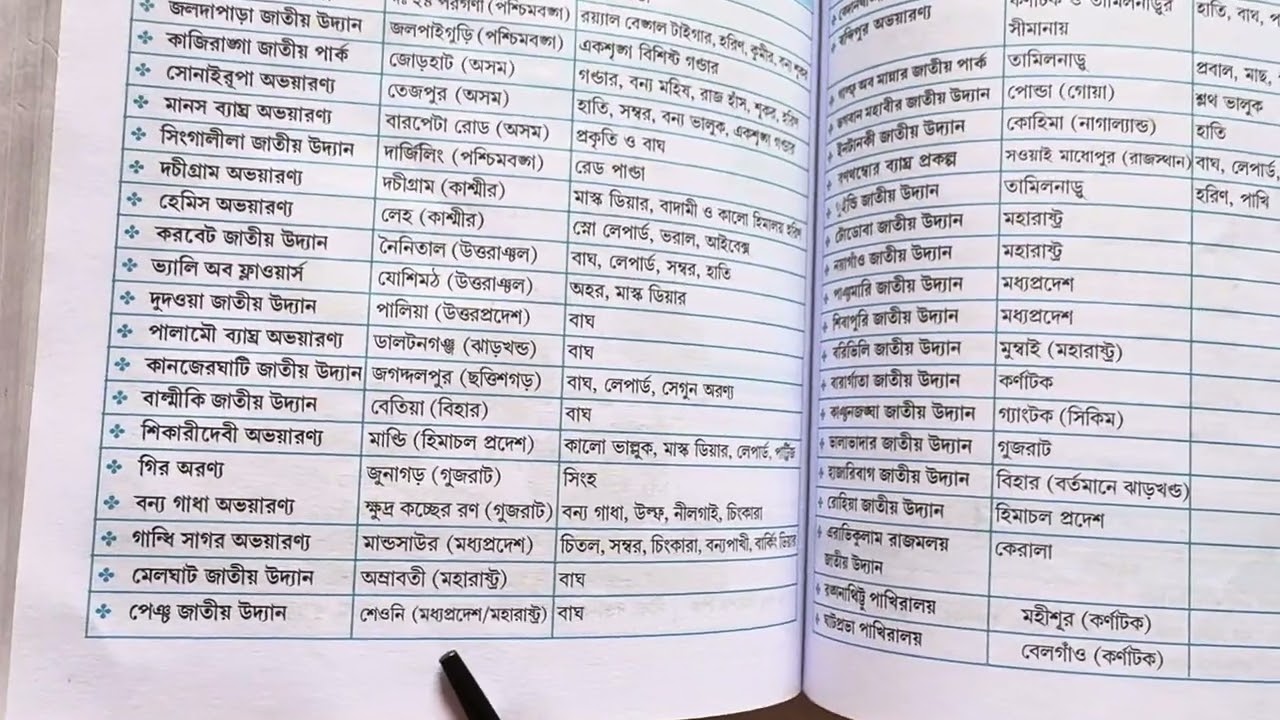 ২৪ পরগণা (পশ্চিমবঙ্গ) রয়্যাল বেঙ্গল টাইগার, হরিণ, কুমীর, বন্য শূকর
জলদাপাড়া জাতীয় উদ্যান জলপাইগুড়ি (পশ্চিমবঙ্গ) একশৃঙ্গ বিশিষ্ট গন্ডার
কাজিরাঙ্গা জাতীয় পার্ক জোড়হাট (অসম) গন্ডার, বন্য মহিষ, রাজ হাঁস, শূকর, হরিণ
সোনাইরূপা অভয়ারণ্য তেজপুর (অসম) হাতি, সম্বর, বন্য ভালুক, একশৃঙ্গ গন্ডার
মানস ব্যাঘ্র অভয়ারণ্য বারপেটা রোড (অসম) প্রকৃতি ও বাঘ
সিংগালীলা জাতীয় উদ্যান দার্জিলিং (পশ্চিমবঙ্গ) রেড পান্ডা
দচীগ্রাম অভয়ারণ্য দচীগ্রাম (কাশ্মীর) মাস্ক ডিয়ার, বাদামী ও কালো হিমালয় হরিণ
হেমিস অভয়ারণ্য লেহ (কাশ্মীর) স্নো লেপার্ড, ভরাল, আইবেক্স
করবেট জাতীয় উদ্যান নৈনিতাল (উত্তরাঞ্চল) বাঘ, লেপার্ড, সম্বর, হাতি
ভ্যালি অব ফ্লাওয়ার্স যোশিমঠ (উত্তরাঞ্চল) অহর, মাস্ক ডিয়ার
দুদওয়া জাতীয় উদ্যান পালিয়া (উত্তরপ্রদেশ) বাঘ
পালামৌ ব্যাঘ্র অভয়ারণ্য ডালটনগঞ্জ (ঝাড়খন্ড) বাঘ
কানজেরঘাটি জাতীয় উদ্যান জগদ্দলপুর (ছত্তিশগড়) বাঘ, লেপার্ড, সেগুন অরণ্য
বাল্মীকি জাতীয় উদ্যান বেতিয়া (বিহার) বাঘ
শিকারীদেবী অভয়ারণ্য মান্ডি (হিমাচল প্রদেশ) কালো ভাল্লুক, মাস্ক ডিয়ার, লেপার্ড,
গির অরণ্য জুনাগড় (গুজরাট) সিংহ
বন্য গাধা অভয়ারণ্য ক্ষুদ্র কচ্ছের রণ (গুজরাট) বন্য গাধা, উল্ফ, নীলগাই, চিংকারা
গান্ধি সাগর অভয়ারণ্য মান্ডসাউর (মধ্যপ্রদেশ) চিতল, সম্বর, চিংকারা, বন্যপাখী, বার্কিং ডিয়ার
মেলঘাট জাতীয় উদ্যান অম্রাবতী (মহারাষ্ট্র) বাঘ
পেঞ্চ জাতীয় উদ্যান শেওনি (মধ্যপ্রদেশ/মহারাষ্ট্র) বাঘ
বন্দিপুর অভয়ারণ্য কর্ণাটক ও তামিলনাড়ুর হাতি, বাঘ,
সীমানায়
গাল্ফ অব মান্নার জাতীয় পার্ক তামিলনাড়ু প্রবাল, মাছ,
ভগবান মহাবীর জাতীয় উদ্যান পোন্ডা (গোয়া) শ্লথ ভালুক
ইনটানকী জাতীয় উদ্যান কোহিমা (নাগাল্যান্ড) হাতি
রণথম্বোর ব্যাঘ্র প্রকল্প সওয়াই মাধোপুর (রাজস্থান) বাঘ, লেপার্ড,
জাতীয় উদ্যান তামিলনাড়ু হরিণ, পাখি
টোডোবা জাতীয় উদ্যান মহারাষ্ট্র
নয়াগাঁও জাতীয় উদ্যান মহারাষ্ট্র
পাঞ্চমারি জাতীয় উদ্যান মধ্যপ্রদেশ
শিবাপুরি জাতীয় উদ্যান মধ্যপ্রদেশ
বরিভিলি জাতীয় উদ্যান মুম্বাই (মহারাষ্ট্র)
জাতীয় উদ্যান কর্ণাটক
কাঞ্চনজঙ্ঘা জাতীয় উদ্যান গ্যাংটক (সিকিম)
ভালাভাদার জাতীয় উদ্যান গুজরাট
হাজারিবাগ জাতীয় উদ্যান বিহার (বর্তমানে ঝাড়খন্ড)
রোহিয়া জাতীয় উদ্যান হিমাচল প্রদেশ
এরাভিকুলাম রাজমলয় কেরালা
জাতীয় উদ্যান
রঙ্গনাথিট্টু পাখিরালয় মহীশূর (কর্ণাটক)
ঘাটপ্রভা পাখিরালয় বেলগাঁও (কর্ণাটক)